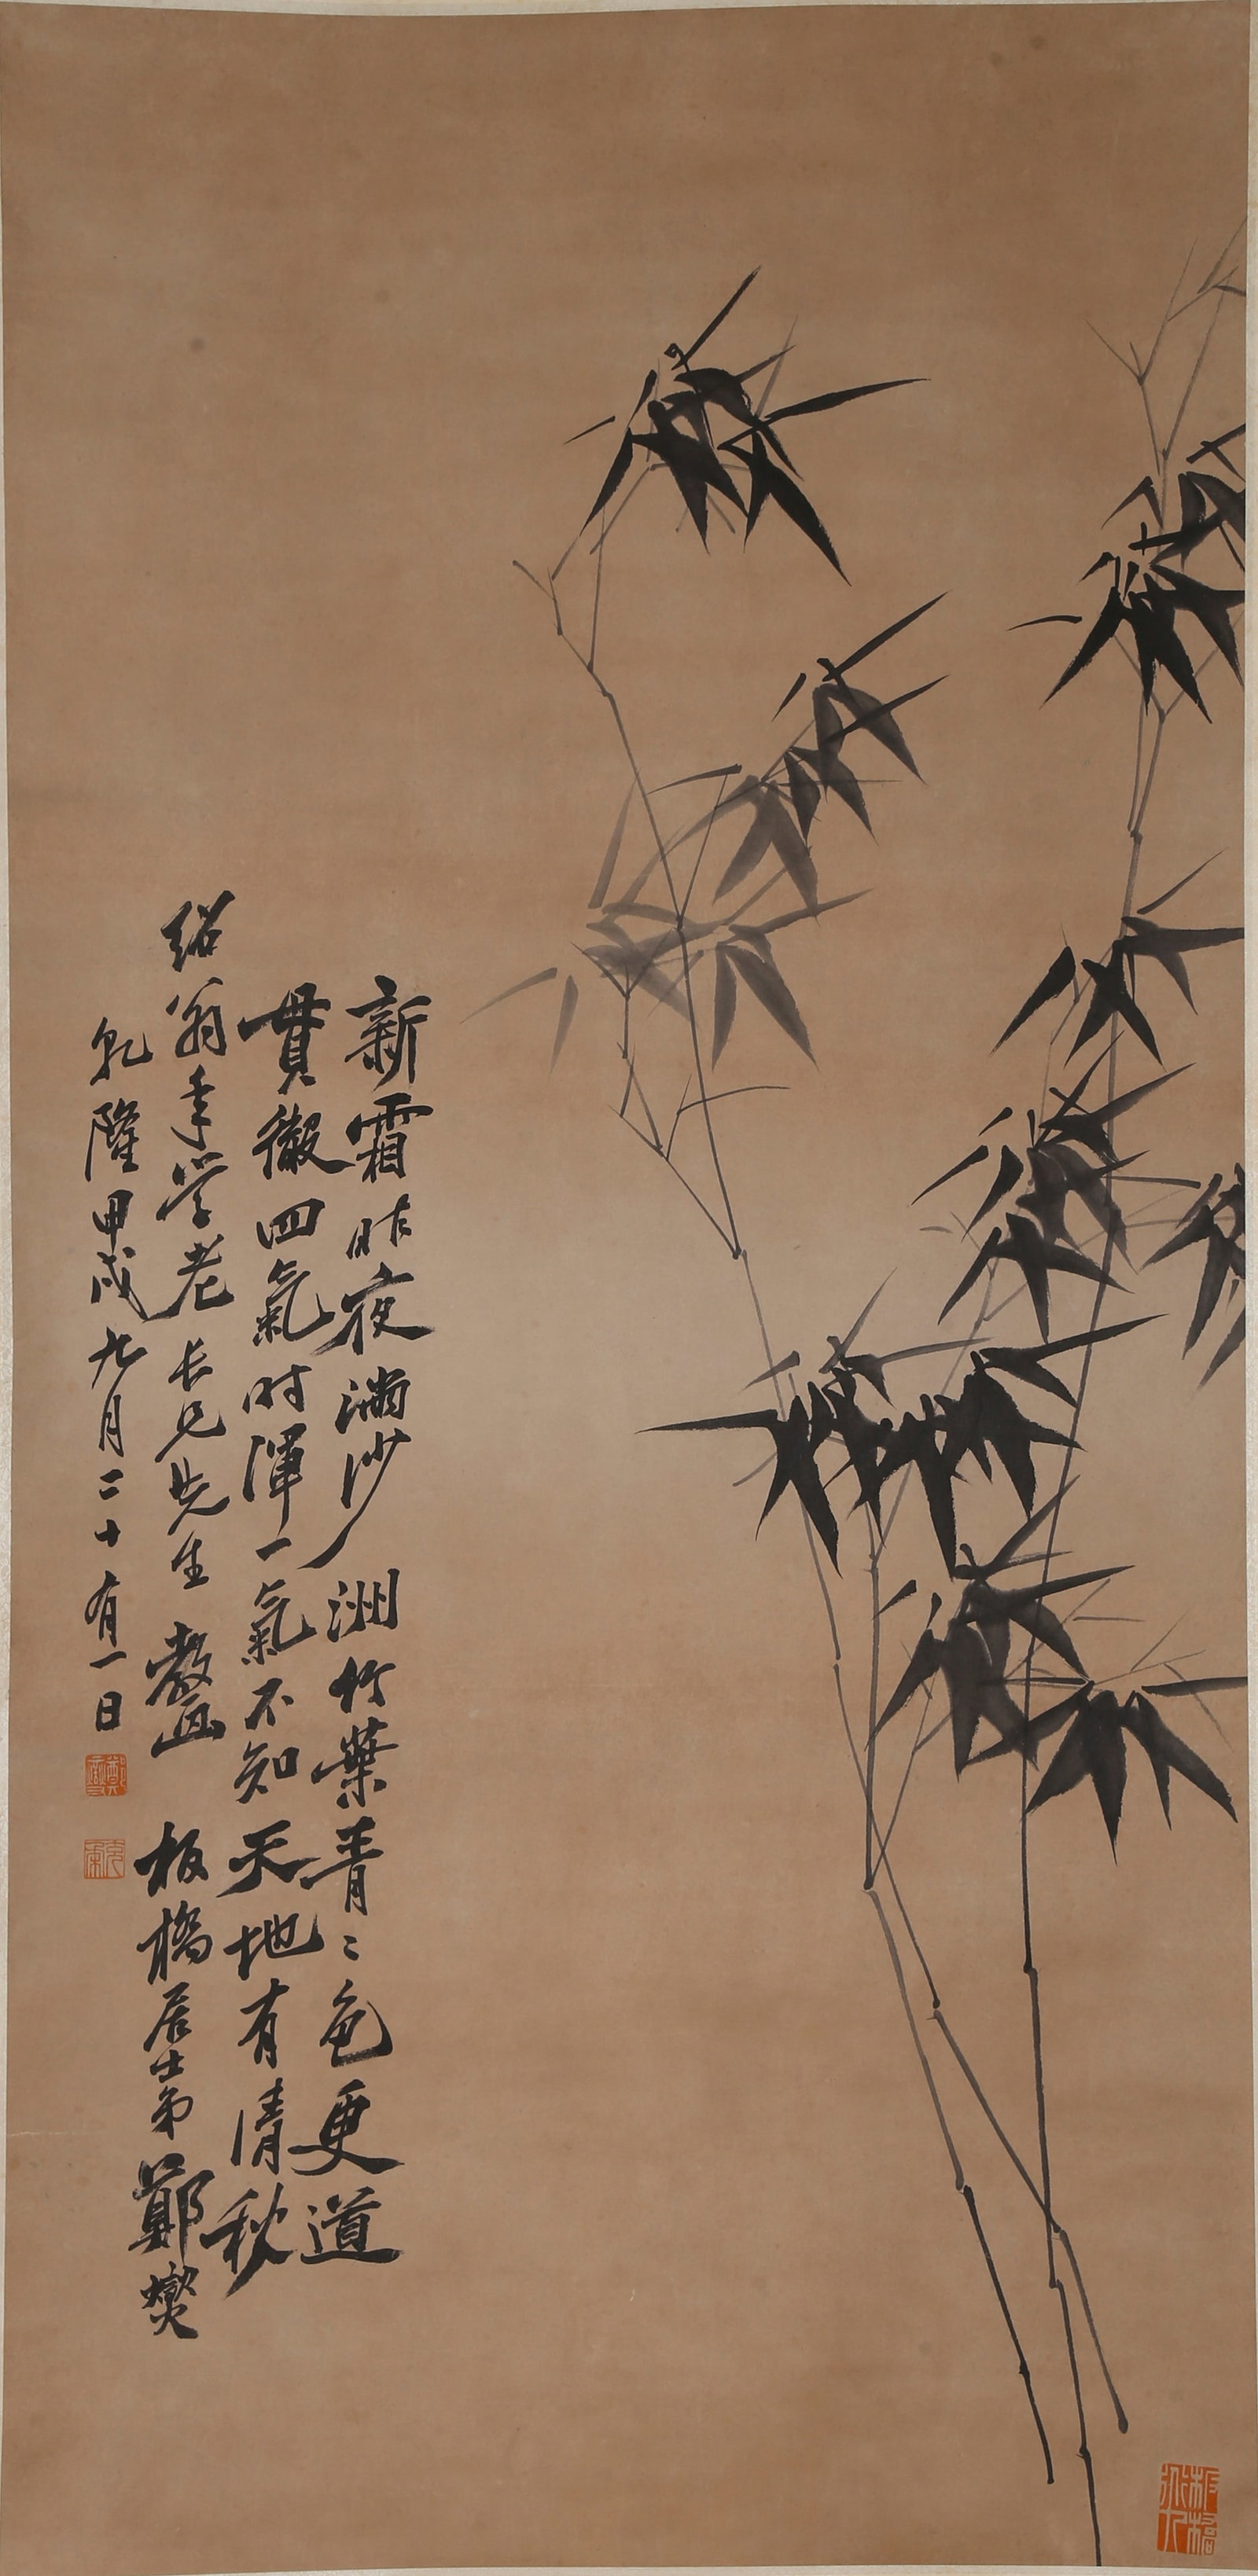 新霜昨夜满沙洲竹葉青〻色更道
貫徹四氣时渾一氣不知天地有清秋
紹翁年学老长兄先生教画 板橋居士弟鄭燮
乹隆甲戌九月二十有一日
鄭燮
克柔